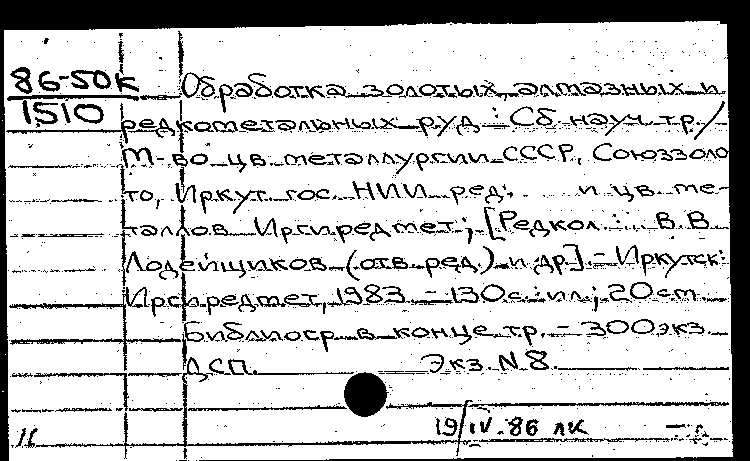 86-50К Обработка золотых, алмазных и
1510 редкометальных руд : Сб. науч. тр. /
М-во цв. металлургии СССР, Союззоло
то, Иркут. гос. НИИ ред. и цв. ме-
таллов Иргиредмет; [Редкол.: В. В.
Лодейщиков (отв. ред.) и др.]. - Иркутск:
Иргиредмет, 1983. - 130 с.: ил.; 20 см.
Библиогр. в конце тр. - 300 экз.
ДСП. Экз. N 8.
19/IV-86 ЛК